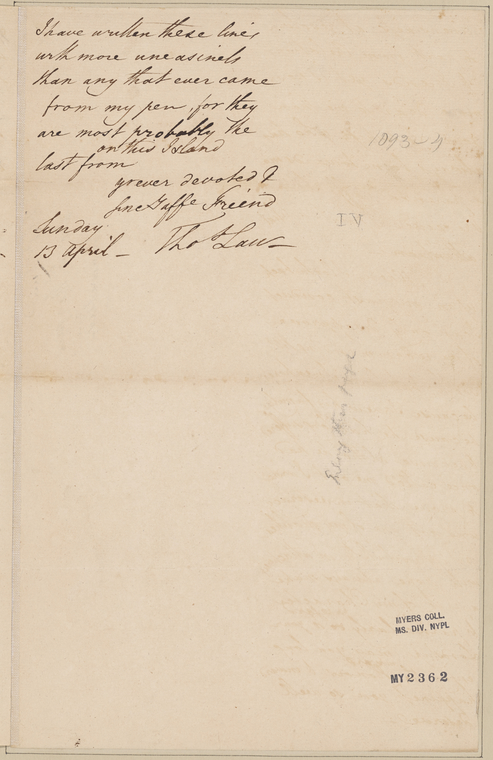 I have written these lines
with more uneasiness
than any that ever came
from my pen, for they
are most probably the
on this Island
last from
yr ever devoted &
sinc Affe Friend
Thos Law
Sunday
13 April
1093-4
IV
MYERS COLL.
MS. DIV. NYPL
MY 2362